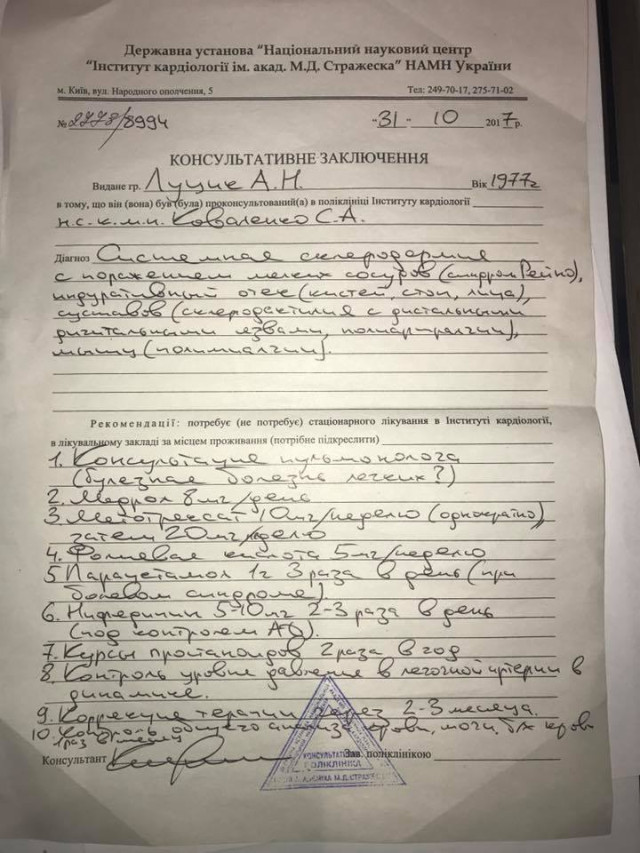 Державна установа “Національний науковий центр
“Інститут кардіології ім. акад. М.Д. Стражеска” НАМН України
м. Київ, вул. Народного ополчення, 5 Тел: 249-70-17, 275-71-02
№2778/8994 -31- 10 2017р.
КОНСУЛЬТАТИВНЕ ЗАКЛЮЧЕННЯ
Видане гр. Луцик А.Н. Вік 1977г
в тому, що він (вона) був (була) проконсультований(а) в поліклініці Інституту кардіології
н.с.к.м.н. Коваленко С.А.
Діагноз Системная склеродермия
с поражением мелких сосудов (синдром Рейно),
индуративный отек (кистей, стоп, лица),
суставов (склеродактилия с дистальными
дигитальными язвами, полиартралгии),
мышц (полимиалгии).
Рекомендації: потребує (не потребує) стаціонарного лікування в Інституті кардіології,
в лікувальному закладі за місцем проживання (потрібне підкреслити)
1. Консультация пульмонолога
(булезная болезнь легких?)
2. Медрол 8мг/день
3. Метотрексат 10мг/неделю (однократно),
затем 20мг/неделю
4. Фолиевая кислота 5мг/неделю
5 Парацетамол 1г 3 раза в день (при
болевом синдроме)
6. Нифедипин 5-10мг 2-3 раза в день
(под контролем АД).
7. Курсы простаноидов 2 раза в год
8. Контроль уровня давления в легочной артерии в
динамике.
9. Коррекция терапии через 2-3 месяца.
10. Контроль общего анализа крови, мочи, б/х крови
1 раз в
Консультант Зав. поліклінікою
КОНСУЛЬТАТИВНА
ПОЛІКЛІНІКА
М.Д. СТРАЖЕСКА